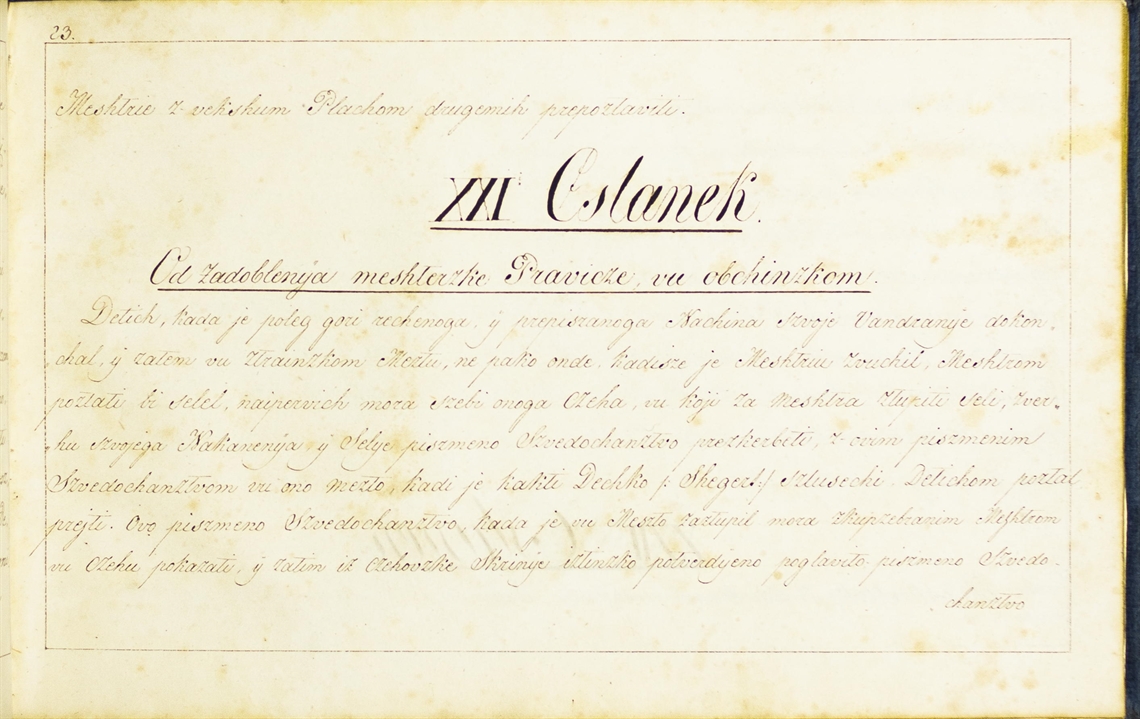 23.
Meshtrie z vekshum Plachom drugemih prepoztaviti.
XXI Cslanek.
Od zadoblenija meshterzke Pravicze, vu obchinzkom.
Detich, kada je poleg gori rechenoga, ÿ prepiszanoga Nachina szvoje Vandranije dokon-
chal, ÿ zatem vu Ztrainzkom Meztu, ne pako onde, kadisze je Meshtriu zvuchil, Meshtrom
poztati bi selel, naipervich mora szebi onoga Czeha, vu koji za Meshtra ztupiti seli, zver-
hu szvojega Nakanenija, ÿ Selye piszmeno Szvedochanztvo prezkerbeti, z-ovim piszmenim
Szvedochanztvom vu ono mezto, kadi je kakti Dechko /: Shegert :/ szlusechi Detichom poztal
prejti. Ovo piszmeno Szvedochanztvo, kada je vu Meszto zaztupil mora zkupzebranim Meshtrom
vu Czehu pokazati, ÿ zatim iz Czehovzke Skrinije iztinzko potverdjeno poglavito piszmeno Szvedo-
chanztvo